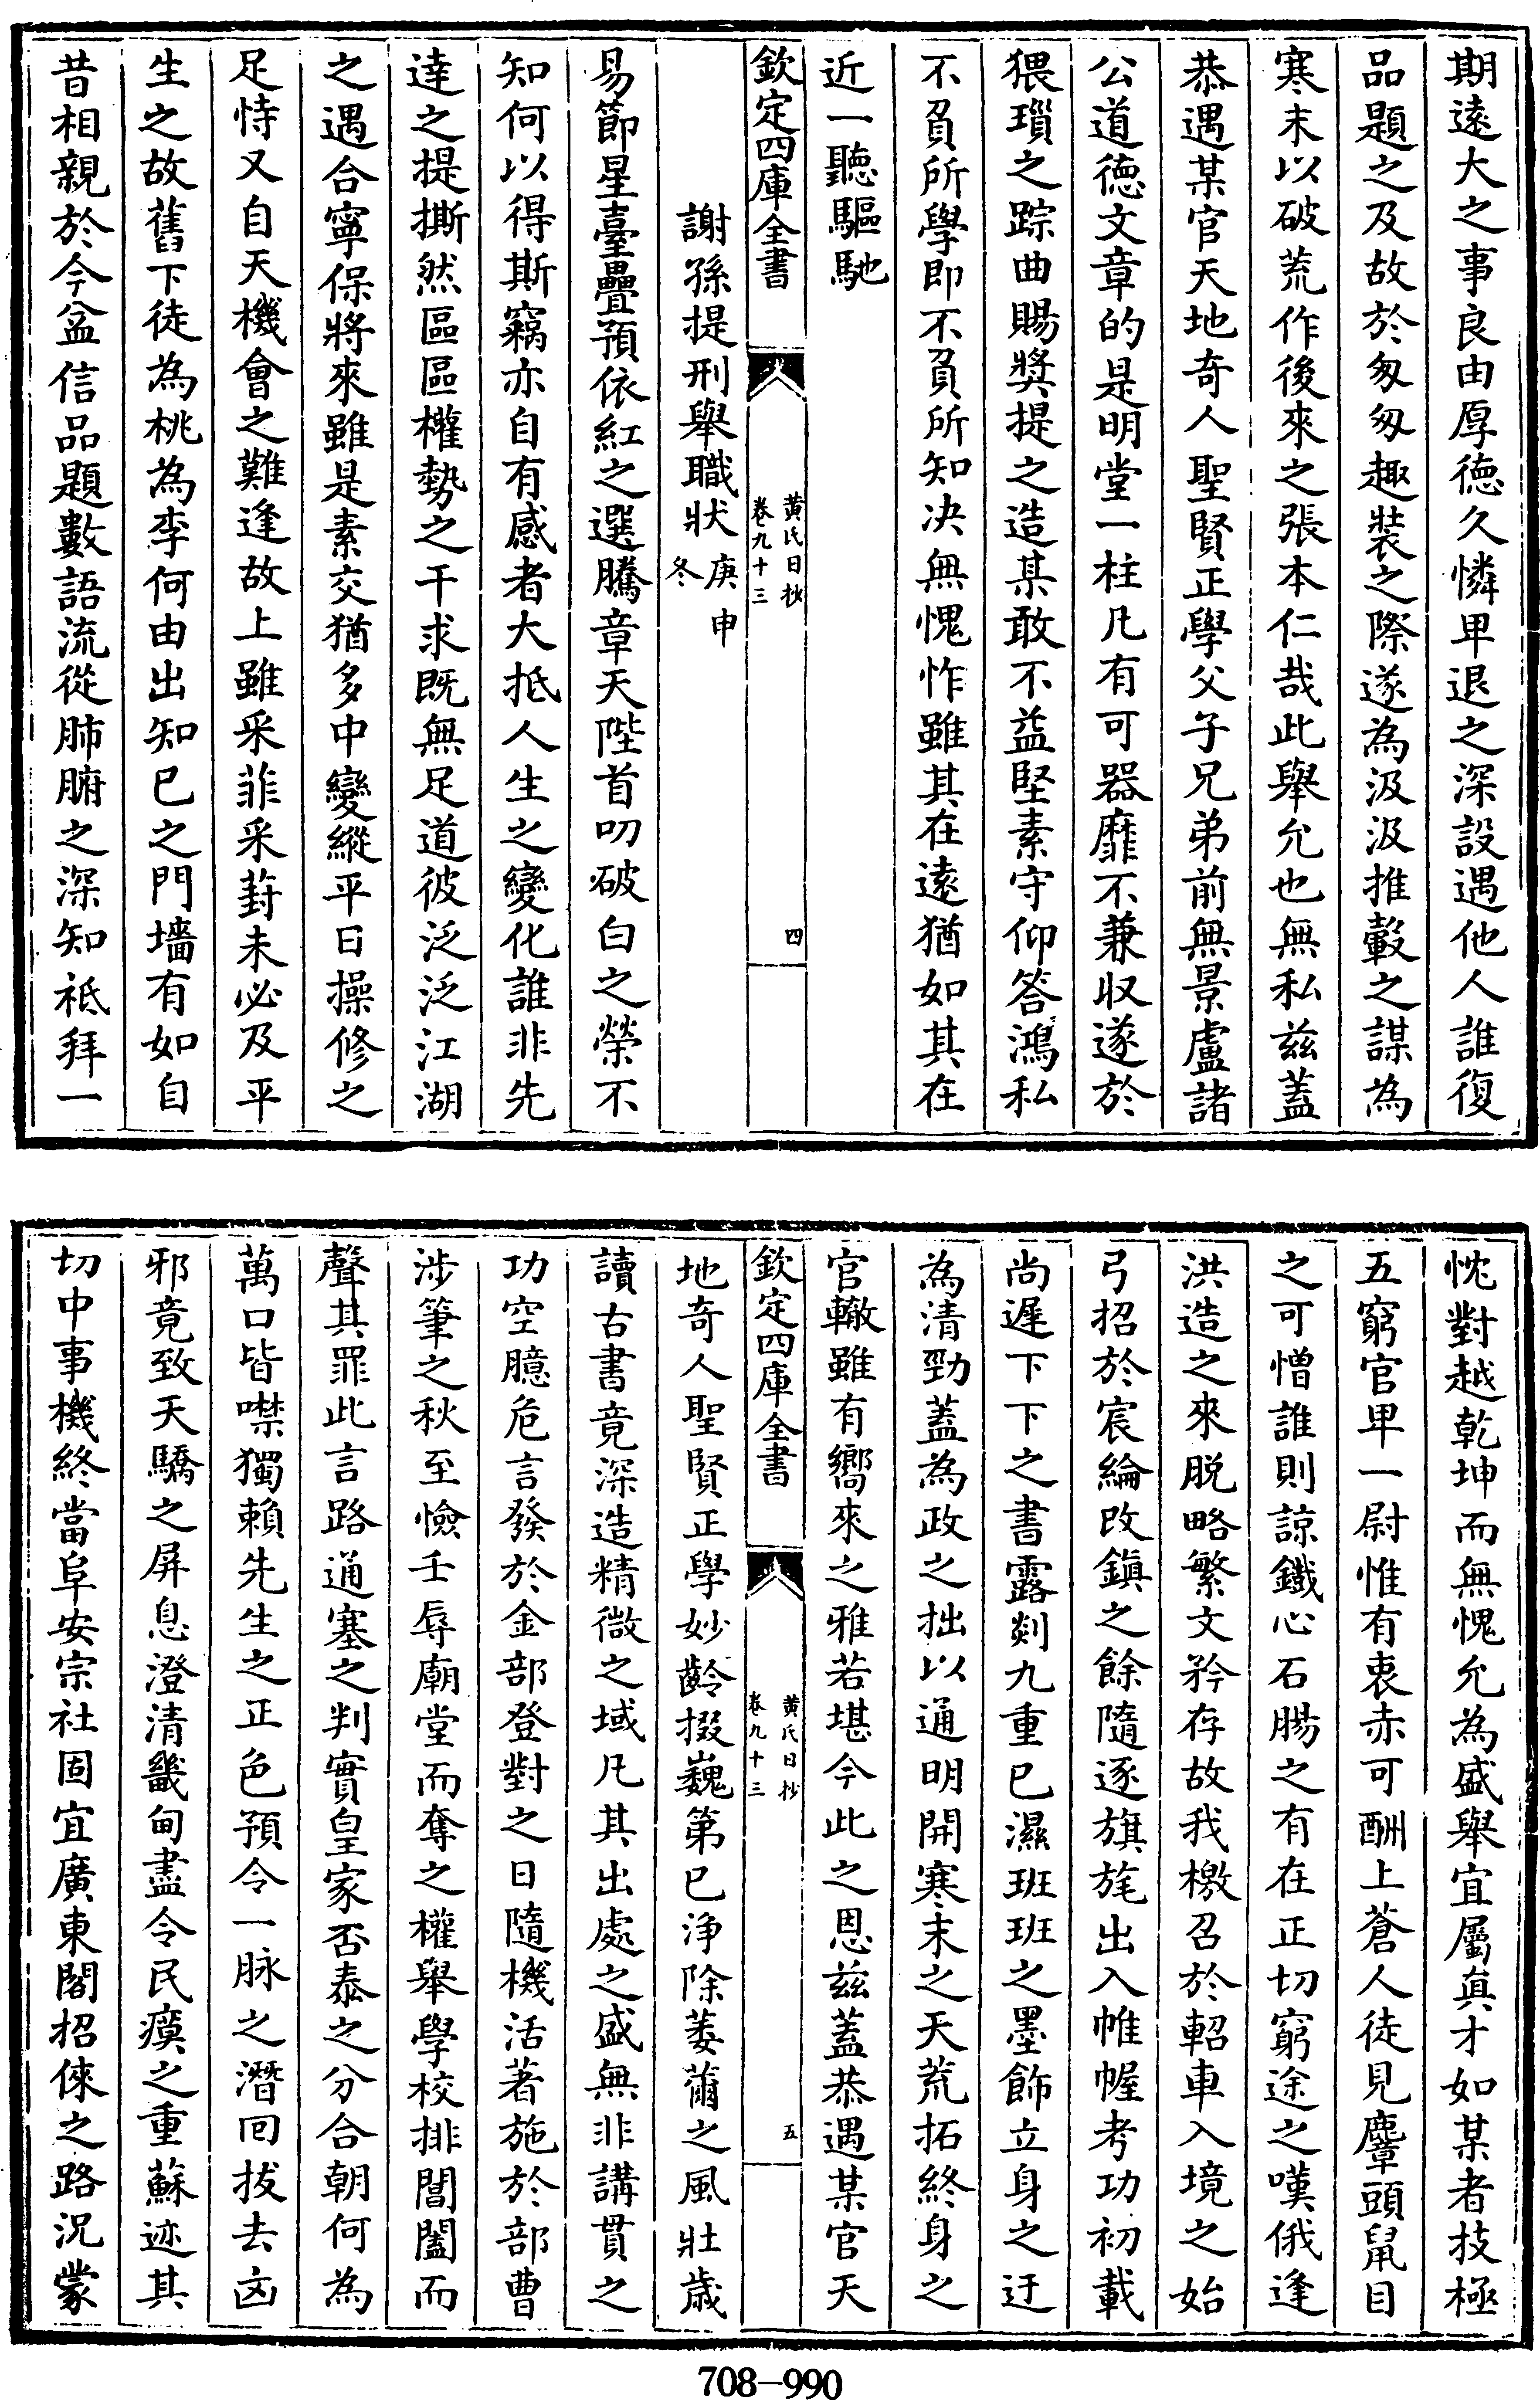 期遠大之事良由厚德久憐卑退之深設遇他人誰復
品題之及故於匆匆趣裝之際遂為汲汲推轂之謀為
寒末以破荒作後來之張本仁哉此舉允也無私兹蓋
恭遇某官天地奇人聖賢正學父子兄弟前無景盧諸
公道德文章的是明堂一柱凡有可器靡不兼収遂於
猥瑣之踪曲賜奬提之造某敢不益堅素守仰答鴻私
不負所學即不負所知决無愧怍雖其在遠猶如其在
近一聽驅馳
欽定四庫全書
黄氏日抄
卷九十三
四
謝孫提刑舉職狀庚申冬
易節星臺疊預依紅之選騰章天陛首叨破白之榮不
知何以得斯竊亦自有感者大抵人生之變化誰非先
達之提撕然區區權勢之干求既無足道彼泛泛江湖
之遇合寧保將來雖是素交猶多中變縱平日操修之
足恃又自天機會之難逢故上雖采菲采葑未必及平
生之故舊下徒為桃為李何由出知已之門墻有如自
昔相親於今益信品題數語流從肺腑之深知祗拜一
忱對越乾坤而無愧允為盛舉宜屬真才如某者技極
五窮官卑一尉惟有衷赤可酬上蒼人徒見麞頭鼠目
之可憎誰則諒鐵心石腸之有在正切窮途之嘆俄逢
洪造之來脱略繁文矜存故我檄召於軺車入境之始
弓招於宸綸改鎮之餘隨逐旗旄出入帷幄考功初載
尚遲下下之書露剡九重已濕班班之墨飾立身之迂
為清勁蓋為政之拙以通明開寒末之天荒拓終身之
官轍雖有嚮來之雅若堪今此之恩兹蓋恭遇某官天
欽定四庫全書
黄氏日抄
卷九十三
五
地奇人聖賢正學妙齡掇巍第已浄除萎薾之風壯歳
讀古書竟深造精微之域凡其出處之盛無非講貫之
功空臆危言發於金部登對之日隨機活著施於部曹
涉筆之秋至憸壬辱廟堂而奪之權舉學校排閶闔而
聲其罪此言路通塞之判實皇家否泰之分合朝何為
萬口皆噤獨賴先生之正色預令一脉之潛回拔去囟
邪竟致天驕之屏息澄清畿甸盡令民瘼之重蘇迹其
切中事機終當阜安宗社固宜廣東閣招倈之路况蒙
708-990